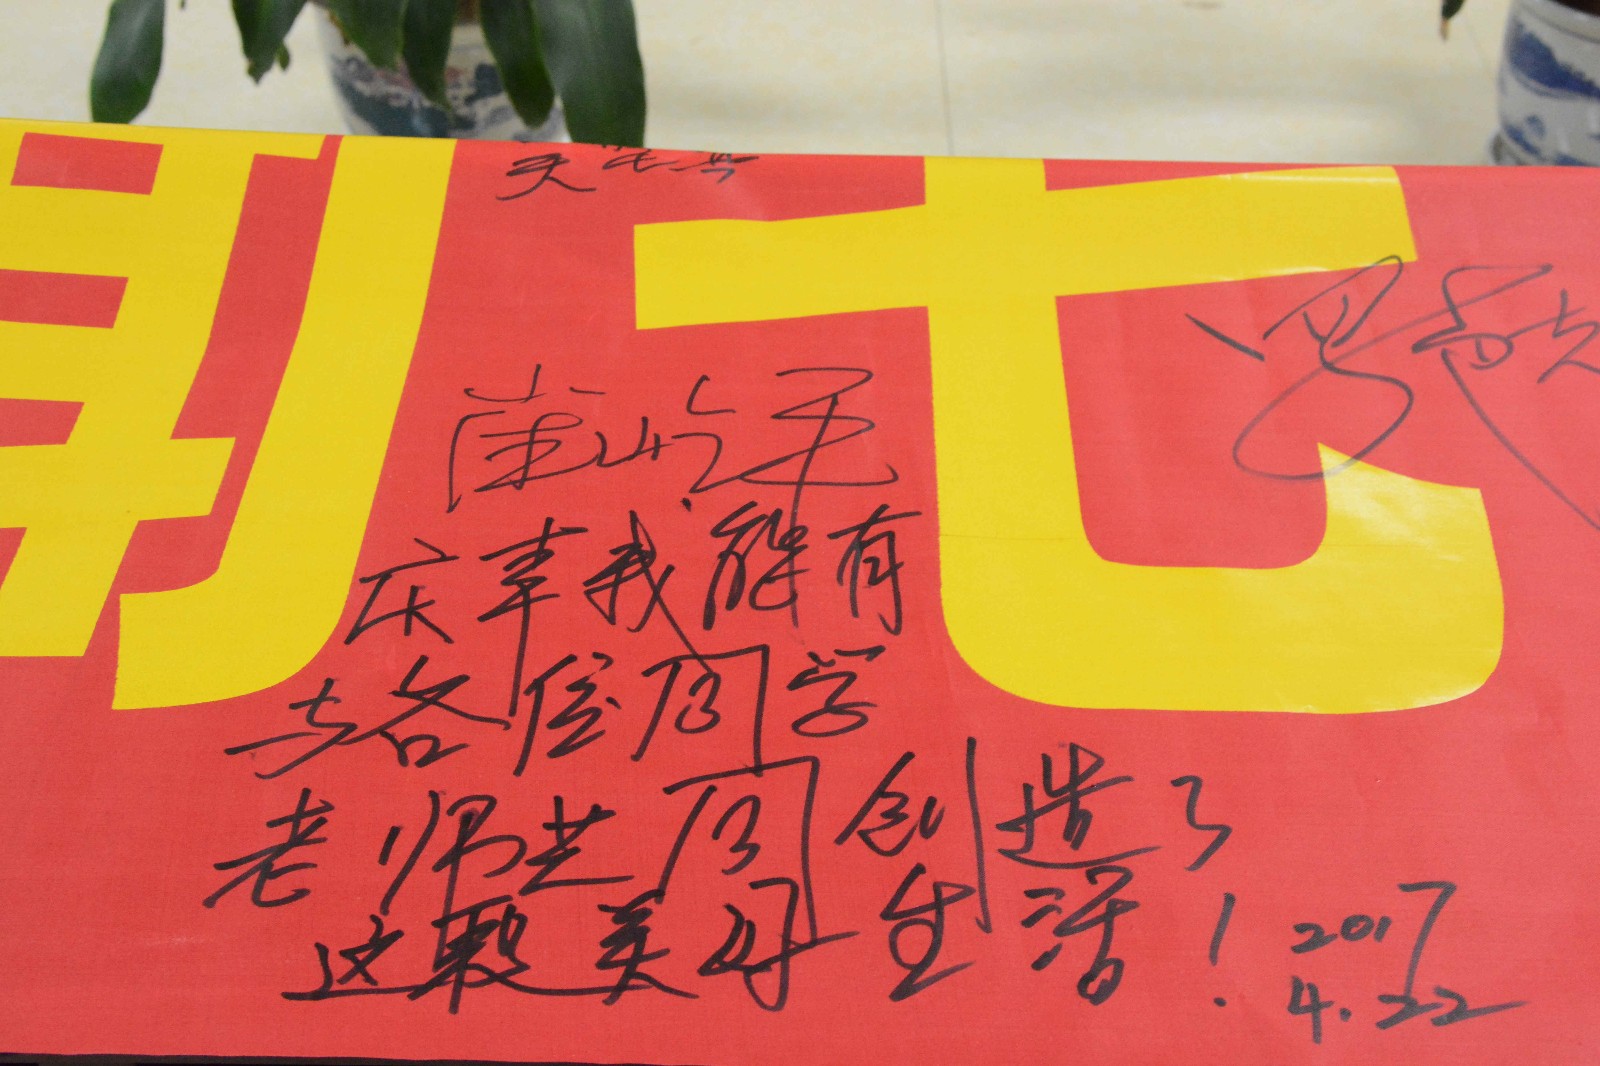 七
庆幸我能有
与各位同学
老师共同创造了
这段美好生活！
2017
4.22